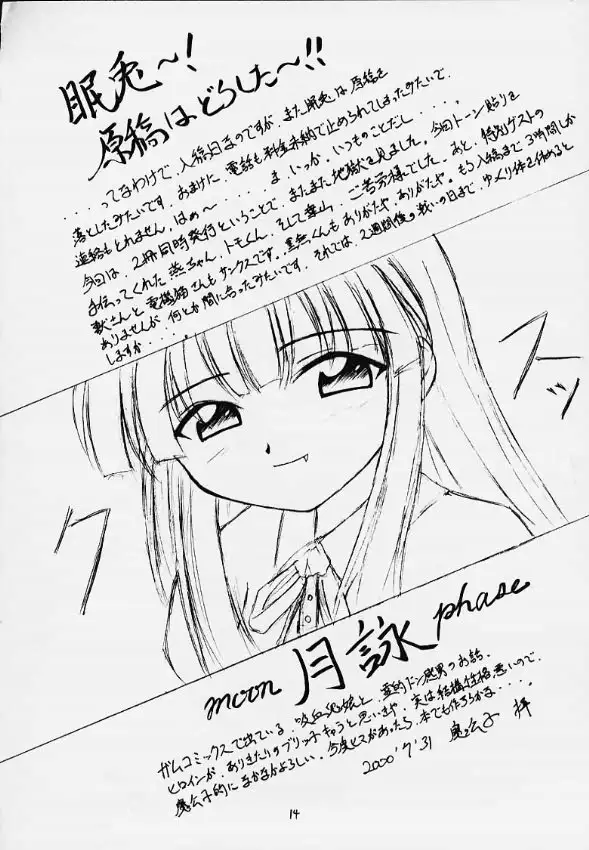 眠兎～!
原稿はどうした～!!
・・・・ってなわけで、入稿日なのですが、また眠兎は原稿を
落としたみたいです。おまけに、電話も料金未納で止められてしまったみたいで、
連絡もとれません。はぁ～・・・・ま、いっか。いつものことだし・・・・。
今回は、2冊同時発行ということで、またまた地獄を見ました。今回トーン貼りを
手伝ってくれた ちゃん、トモくん、そして 山、ご苦労様でした。あと、特別ゲストの
獣さんと電機猫さんもサンクスです。 くんもありがたや、ありがたや。もう入稿まで、3時間しか
ありませんが、何とか間に合ったみたいです。それでは、2週間後の戦いの日まで、ゆっくり体を休めると
しますか・・・・。
クスッ
moon 月詠 phase
ガムコミックスで出ている、吸血鬼娘と、霊的ドン感男のお話。
ヒロインが、ありきたりのブリッ子キャラと思いきや、実は結構性格悪いので、
 的になかなかよろしい。今度ヒマがあったら、本でも作ろうかな・・・・。
2000'7'31 拝
14